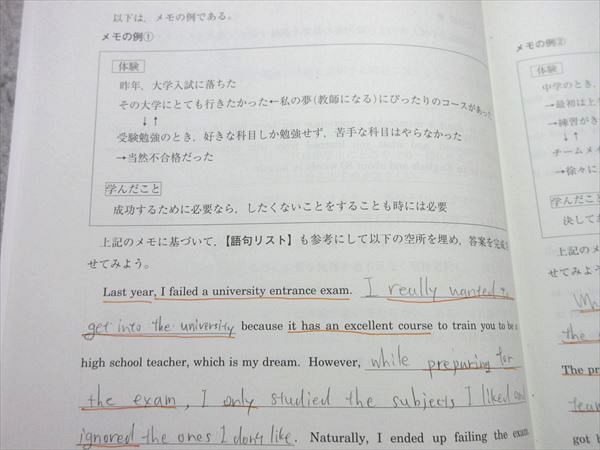 以下は、メモの例である。
メモの例①
体験
昨年、大学入試に落ちた
その大学にとても行きたかった←私の夢(教師になる)にぴったりのコースがあった
↓↑
受験勉強のとき、好きな科目しか勉強せず、苦手な科目はやらなかった
→当然不合格だった
学んだこと
成功するために必要なら、したくないことをすることも時には必要
上記のメモに基づいて、【語句リスト】も参考にして以下の空所を埋め、答案を完成
せてみよう。
Last year, I failed a university entrance exam. I really wanted to
get into the university because it has an excellent course to train you to be a
high school teacher, which is my dream. However, while preparing for
the exam, I only studied the subjects I liked and
ignored the ones I don't like. Naturally, I ended up failing the exam
メモの例②
体験
中学のとき、
→最初は上
→練習がき
↓↑
チームメイ
→徐々に
学んだこと
決して
上記のメ
せてみよう
the
The pr
team
got b